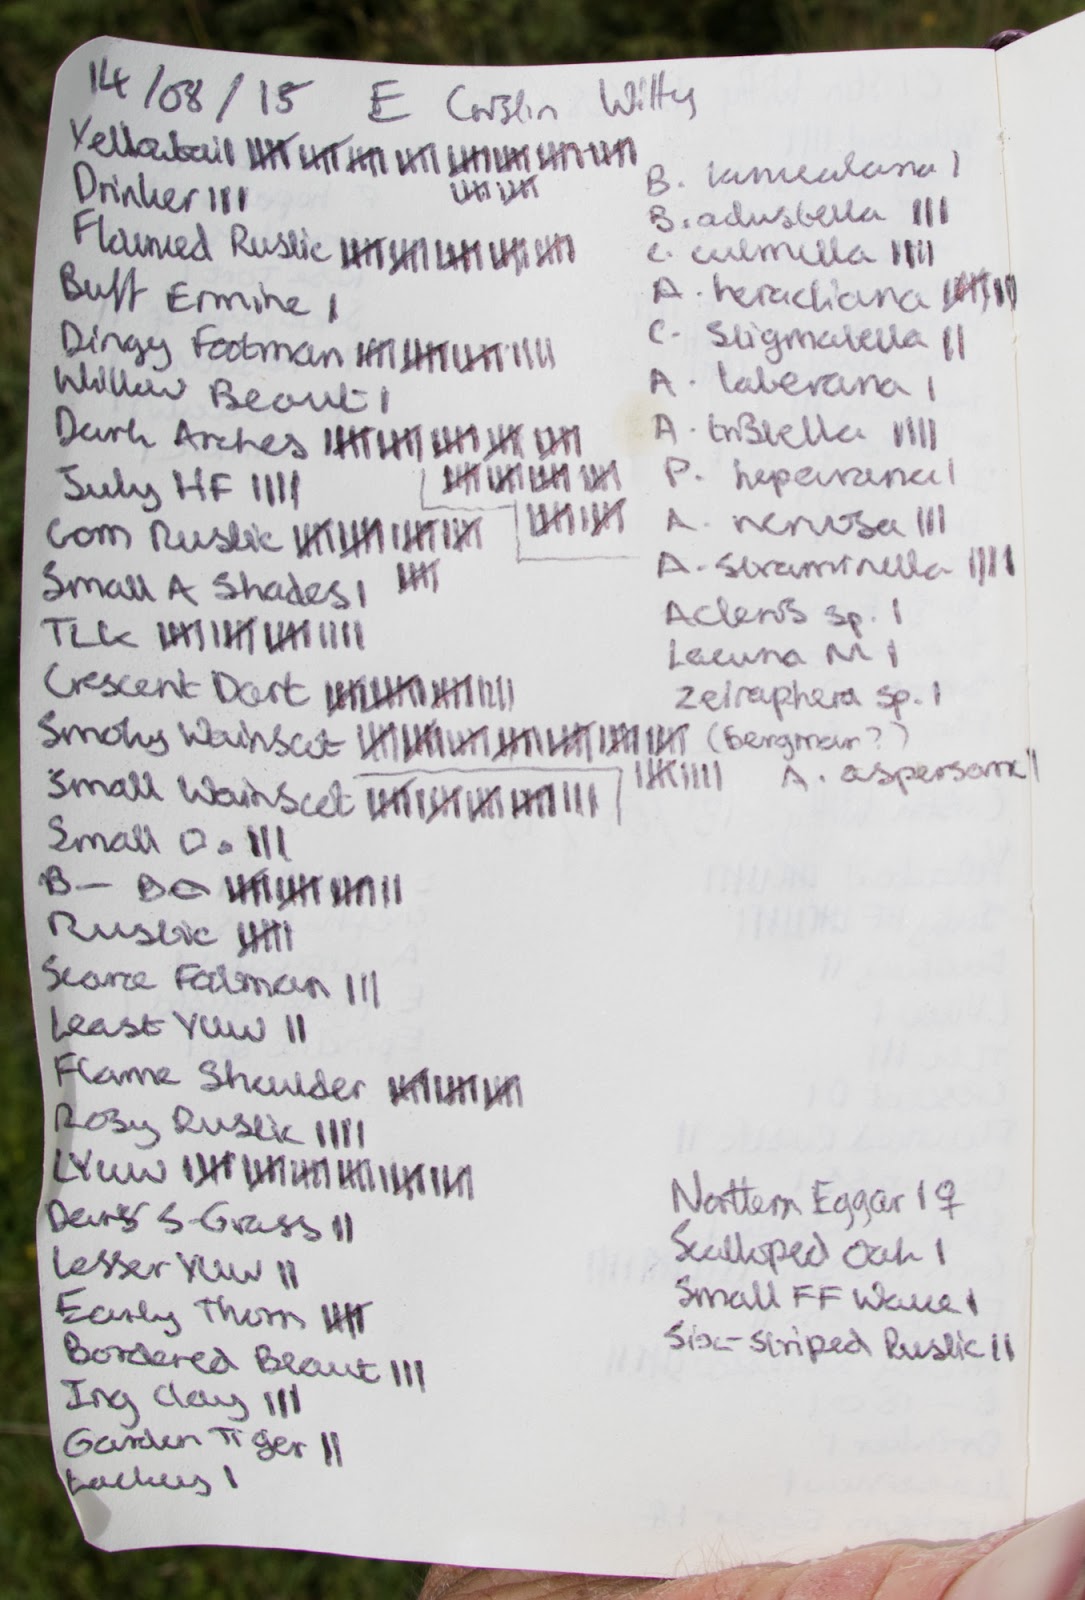 14/08/15 E Corslin Witty
Yellowtail 卌 卌 卌 卌 卌 卌 卌 卌
卌 卌
Drinker III
Flamed Rustic 卌 卌 卌 卌 卌
Buff Ermine I
Dingy Footman 卌 卌 卌 IIII
Willow Beaut I
Dark Arches 卌 卌 卌 卌 卌
卌 卌 卌 卌
卌 卌
July HF IIII
Com Rustic 卌 卌 卌 卌
卌
Small A Shades I
TLK 卌 卌 卌 IIII
Crescent Dart 卌 卌 卌 III
Smoky Wainscot 卌 卌 卌 卌 卌 卌 卌 (bergman?)
卌 IIII
Small Wainscot 卌 卌 卌 卌 III
Small O. III
B— B 卌 卌 卌 II
Rustic 卌
Scarce Footman III
Least YUW II
Flame Shoulder 卌 卌 卌
Rosy Rustic IIII
LYUW 卌 卌 卌 卌 卌 卌
S-Grass II
Lesser YUW II
Early Thorn 卌
Bordered Beaut III
Ing Clay III
Garden Tiger II
Lackey I
B. lunealana I
B. adustella III
C. culmella IIII
A. heracliana 卌 II
C. Stigmatella II
A. laterana I
A. tristella IIII
P. heparana I
A. nervosa III
A. straminella IIII
Acleris sp. I
Lacuna M I
Zeiraphera sp. I
A. aspersana II
Northern Eggar I ♀
Scalloped Oak I
Small FF Wave I
Six-Striped Rustic II